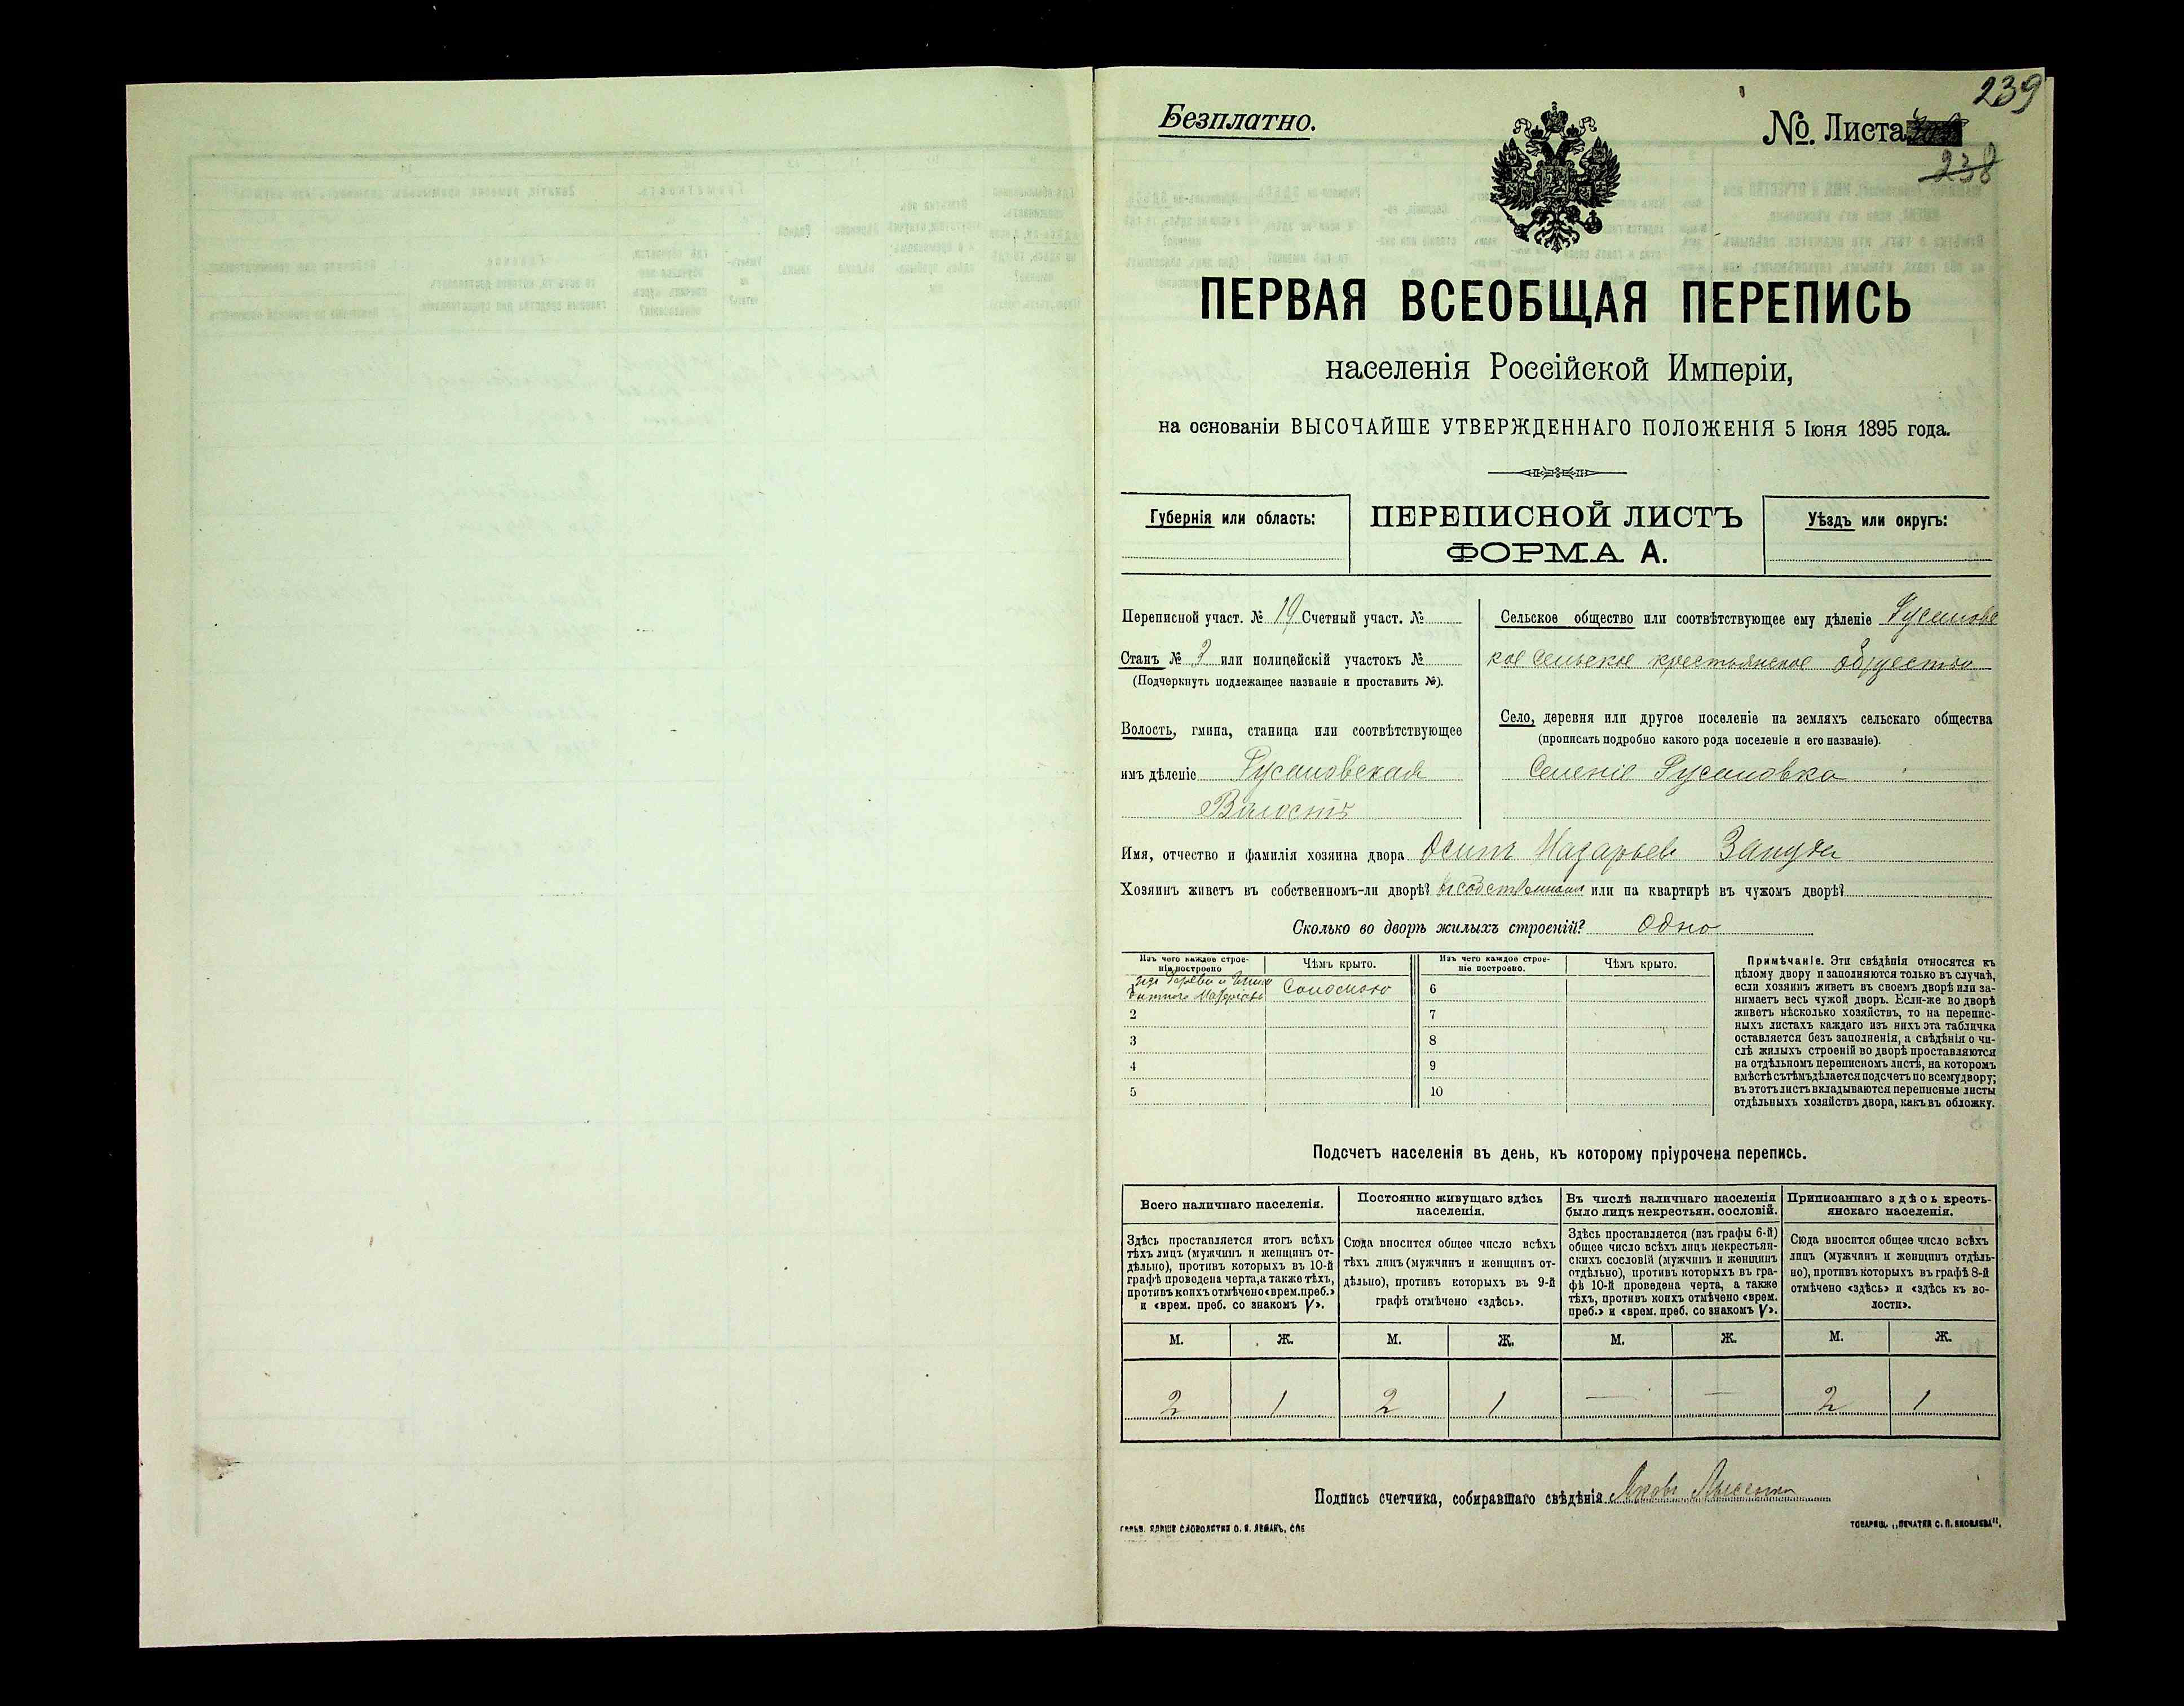 239
Безплатно.
№ Листа
238
ПЕРВАЯ ВСЕОБЩАЯ ПЕРЕПИСЬ
населенія Россійской Имперіи,
на основаніи ВЫСОЧАЙШЕ УТВЕРЖДЕННАГО ПОЛОЖЕНІЯ 5 Іюня 1895 года.
Губернія или область:
ПЕРЕПИСНОЙ ЛИСТЪ
ФОРМА А.
Уѣздъ или округъ:
Переписной участ. № 19 Счетный участ. №
Станъ № 3 или полицейскій участокъ №
(Подчеркнуть подлежащее названіе и проставить №).
Волость, гмина, станица или соотвѣтствующее
имъ дѣленіе Русановская
Волость
Сельское общество или соотвѣтствующее ему дѣленіе Русановс
кое сельское крестьянское общество
Село, деревня или другое поселеніе на земляхъ сельскаго общества
(прописать подробно какого рода поселеніе и его названіе).
Селеніе Русановка
Имя, отчество и фамилія хозяина двора Осипъ Назарьевъ Запуда
Хозяинъ живетъ въ собственномъ-ли дворѣ? въ собственномъ или на квартирѣ въ чужомъ дворѣ?
Сколько во дворѣ жилыхъ строеній? Одно
Изъ чего каждое строе-
ніе построено
Чѣмъ крыто.
Изъ чего каждое строе-
ніе построено.
Чѣмъ крыто.
изъ дерева и
Соломою
6
2
7
3
8
4
9
5
10
Примѣчаніе. Эти свѣдѣнія относятся къ
цѣлому двору и заполняются только въ случаѣ,
если хозяинъ живетъ въ своемъ дворѣ или за-
нимаетъ весь чужой дворъ. Если-же во дворѣ
живетъ нѣсколько хозяйствъ, то на перепис-
ныхъ листахъ каждаго изъ нихъ эта табличка
оставляется безъ заполненія, а свѣдѣнія о чи-
слѣ жилыхъ строеній во дворѣ проставляются
на отдѣльномъ переписномъ листѣ, на которомъ
вмѣстѣ съ тѣмъ дѣлается подсчетъ по всему двору;
въ этотъ листъ вкладываются переписные листы
отдѣльныхъ хозяйствъ двора, какъ въ обложку.
Подсчетъ населенія въ день, къ которому пріурочена перепись.
Всего наличнаго населенія.
Здѣсь проставляется итогъ всѣхъ
тѣхъ лицъ (мужчинъ и женщинъ от-
дѣльно), противъ которыхъ въ 10-й
графѣ проведена черта, а также тѣхъ,
противъ коихъ отмѣчено «врем. преб.»
и «врем. преб. со знакомъ V».
Постоянно живущаго здѣсь
населенія.
Сюда вносится общее число всѣхъ
тѣхъ лицъ (мужчинъ и женщинъ от-
дѣльно), противъ которыхъ въ 9-й
графѣ отмѣчено «здѣсь».
Въ числѣ наличнаго населенія
было лицъ некрестьян. сословій.
Здѣсь проставляется (изъ графы 6-й)
общее число всѣхъ лицъ некрестьян-
скихъ сословій (мужчинъ и женщинъ
отдѣльно), противъ которыхъ въ гра-
фѣ 10-й проведена черта, а также
тѣхъ, противъ коихъ отмѣчено «врем.
преб.» и «врем. преб. со знакомъ V».
Приписаннаго здѣсь кресть-
янскаго населенія.
Сюда вносится общее число всѣхъ
лицъ (мужчинъ и женщинъ отдѣль-
но), противъ которыхъ въ графѣ 8-й
отмѣчено «здѣсь» и «здѣсь къ во-
лости».
М. Ж. М. Ж. М. Ж. М. Ж.
2 1 2 1 — — 2 1
Подпись счетчика, собиравшаго свѣдѣнія Яковъ
ТОВАРИЩ. „ПЕЧАТНЯ С. П. ЯКОВЛЕВА".